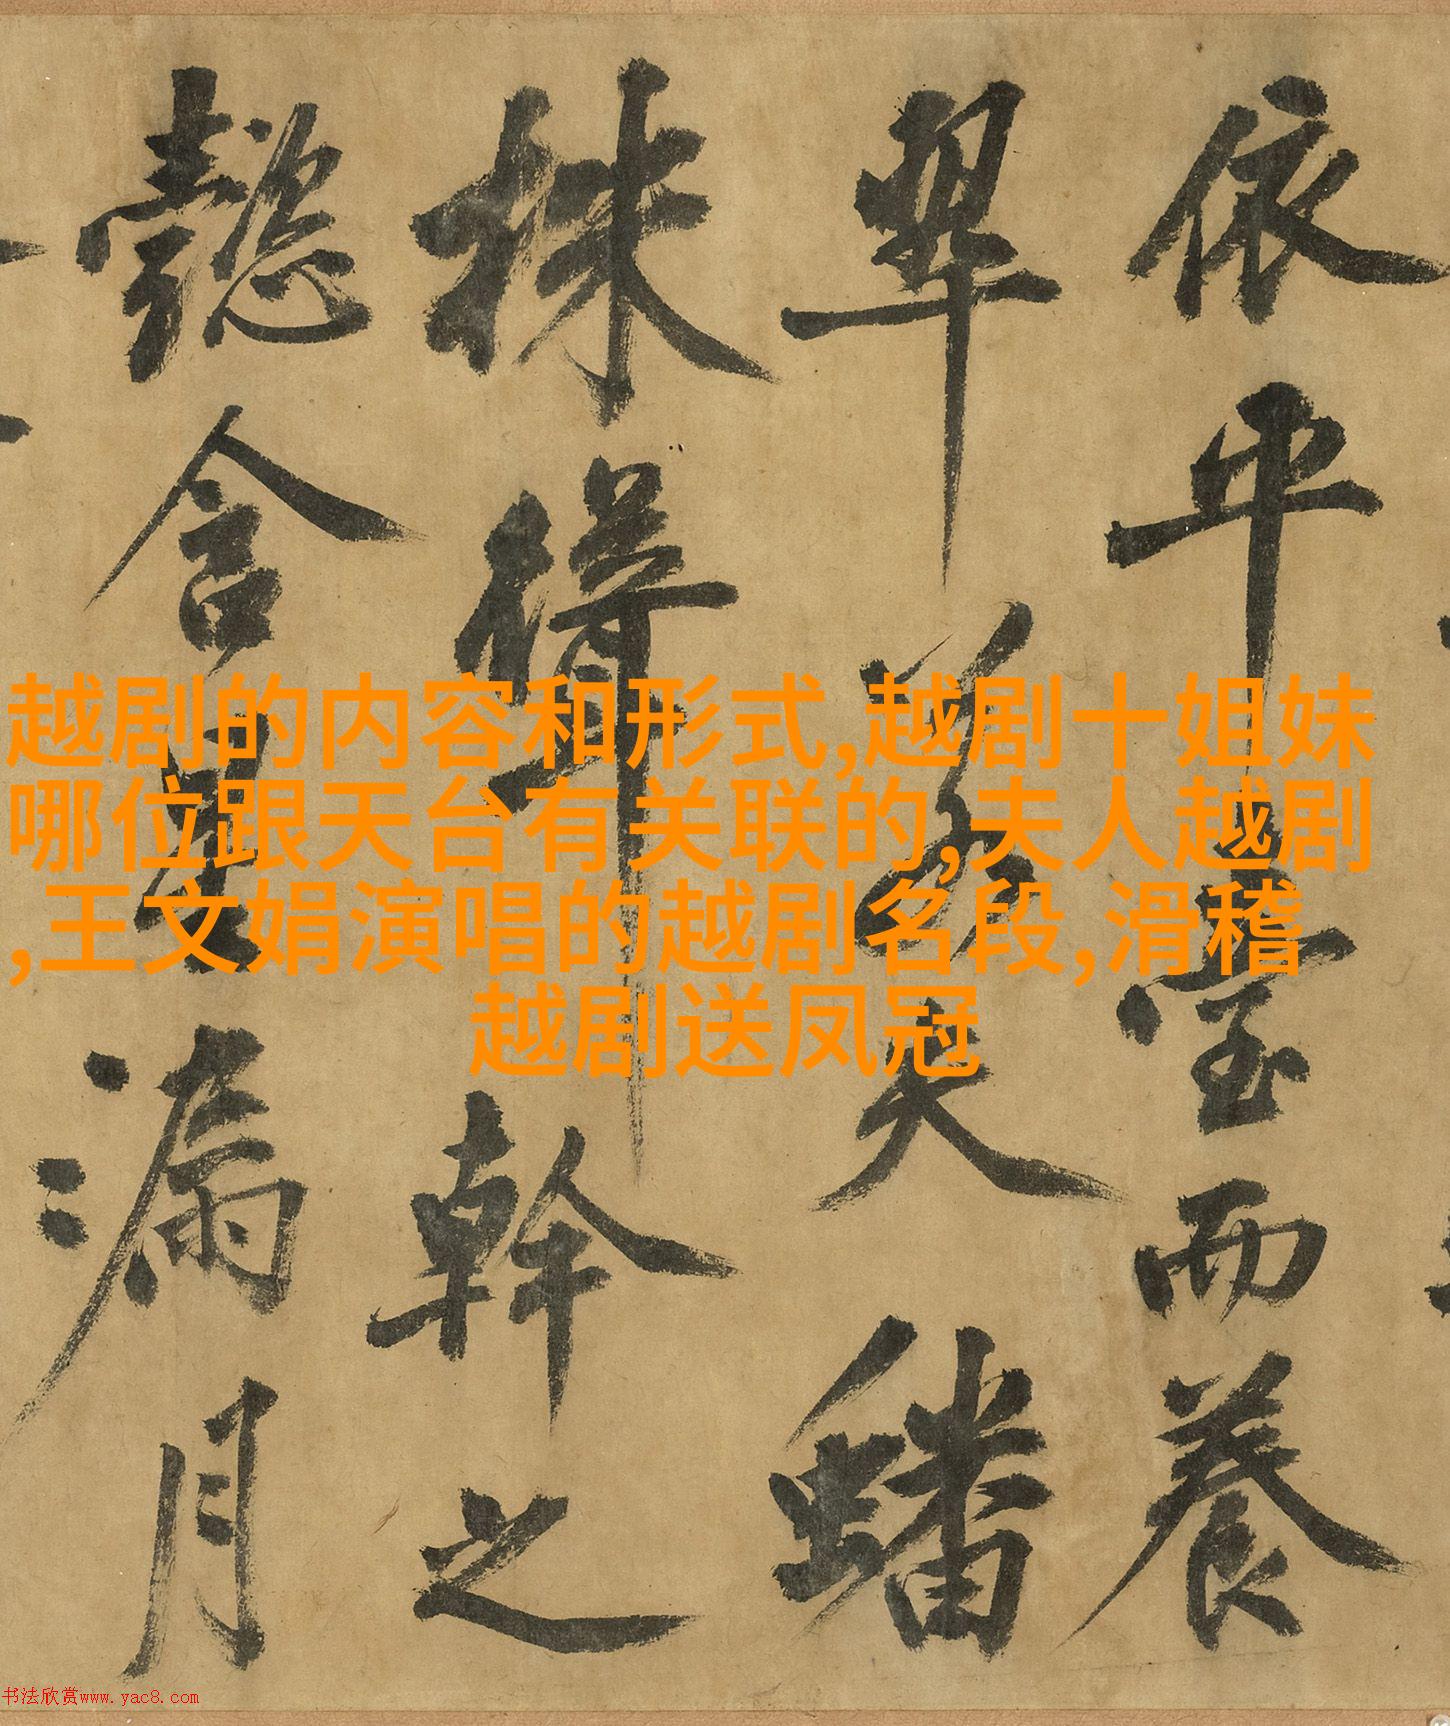 依平臺而養
翠若夫蟠
株聳幹之
懿含星漏月
越剧的内容和形式,越剧十姐妹
哪位跟天台有关联的,夫人越剧
,王文娟演唱的越剧名段,滑稽
越剧送凤冠
书法欣赏www.yac8.com